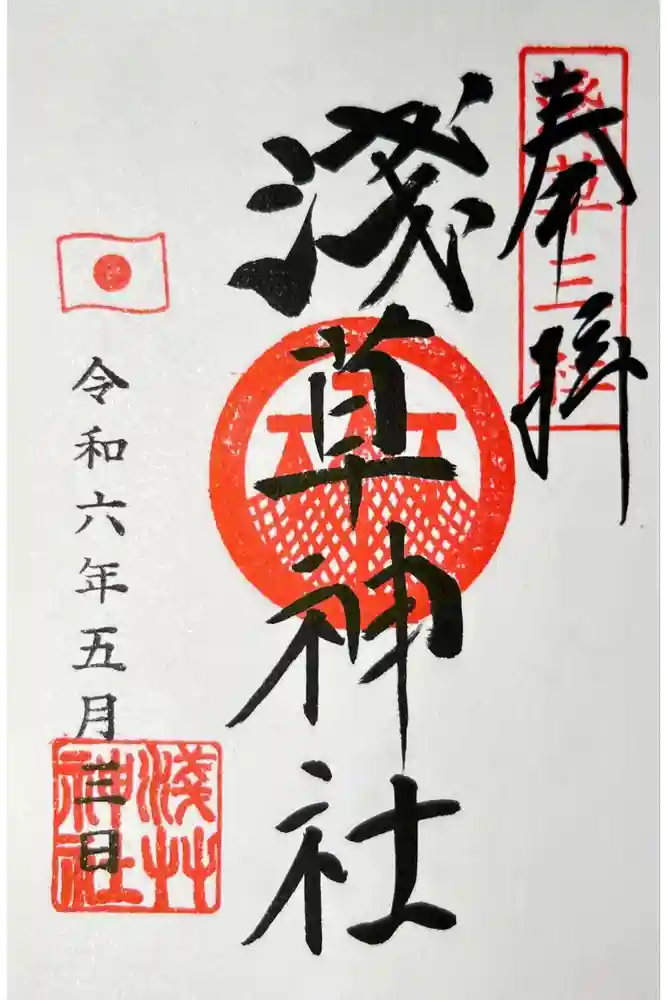 奉拝
浅草三社
淺草神社
令和六年五月三日
淺草
神社